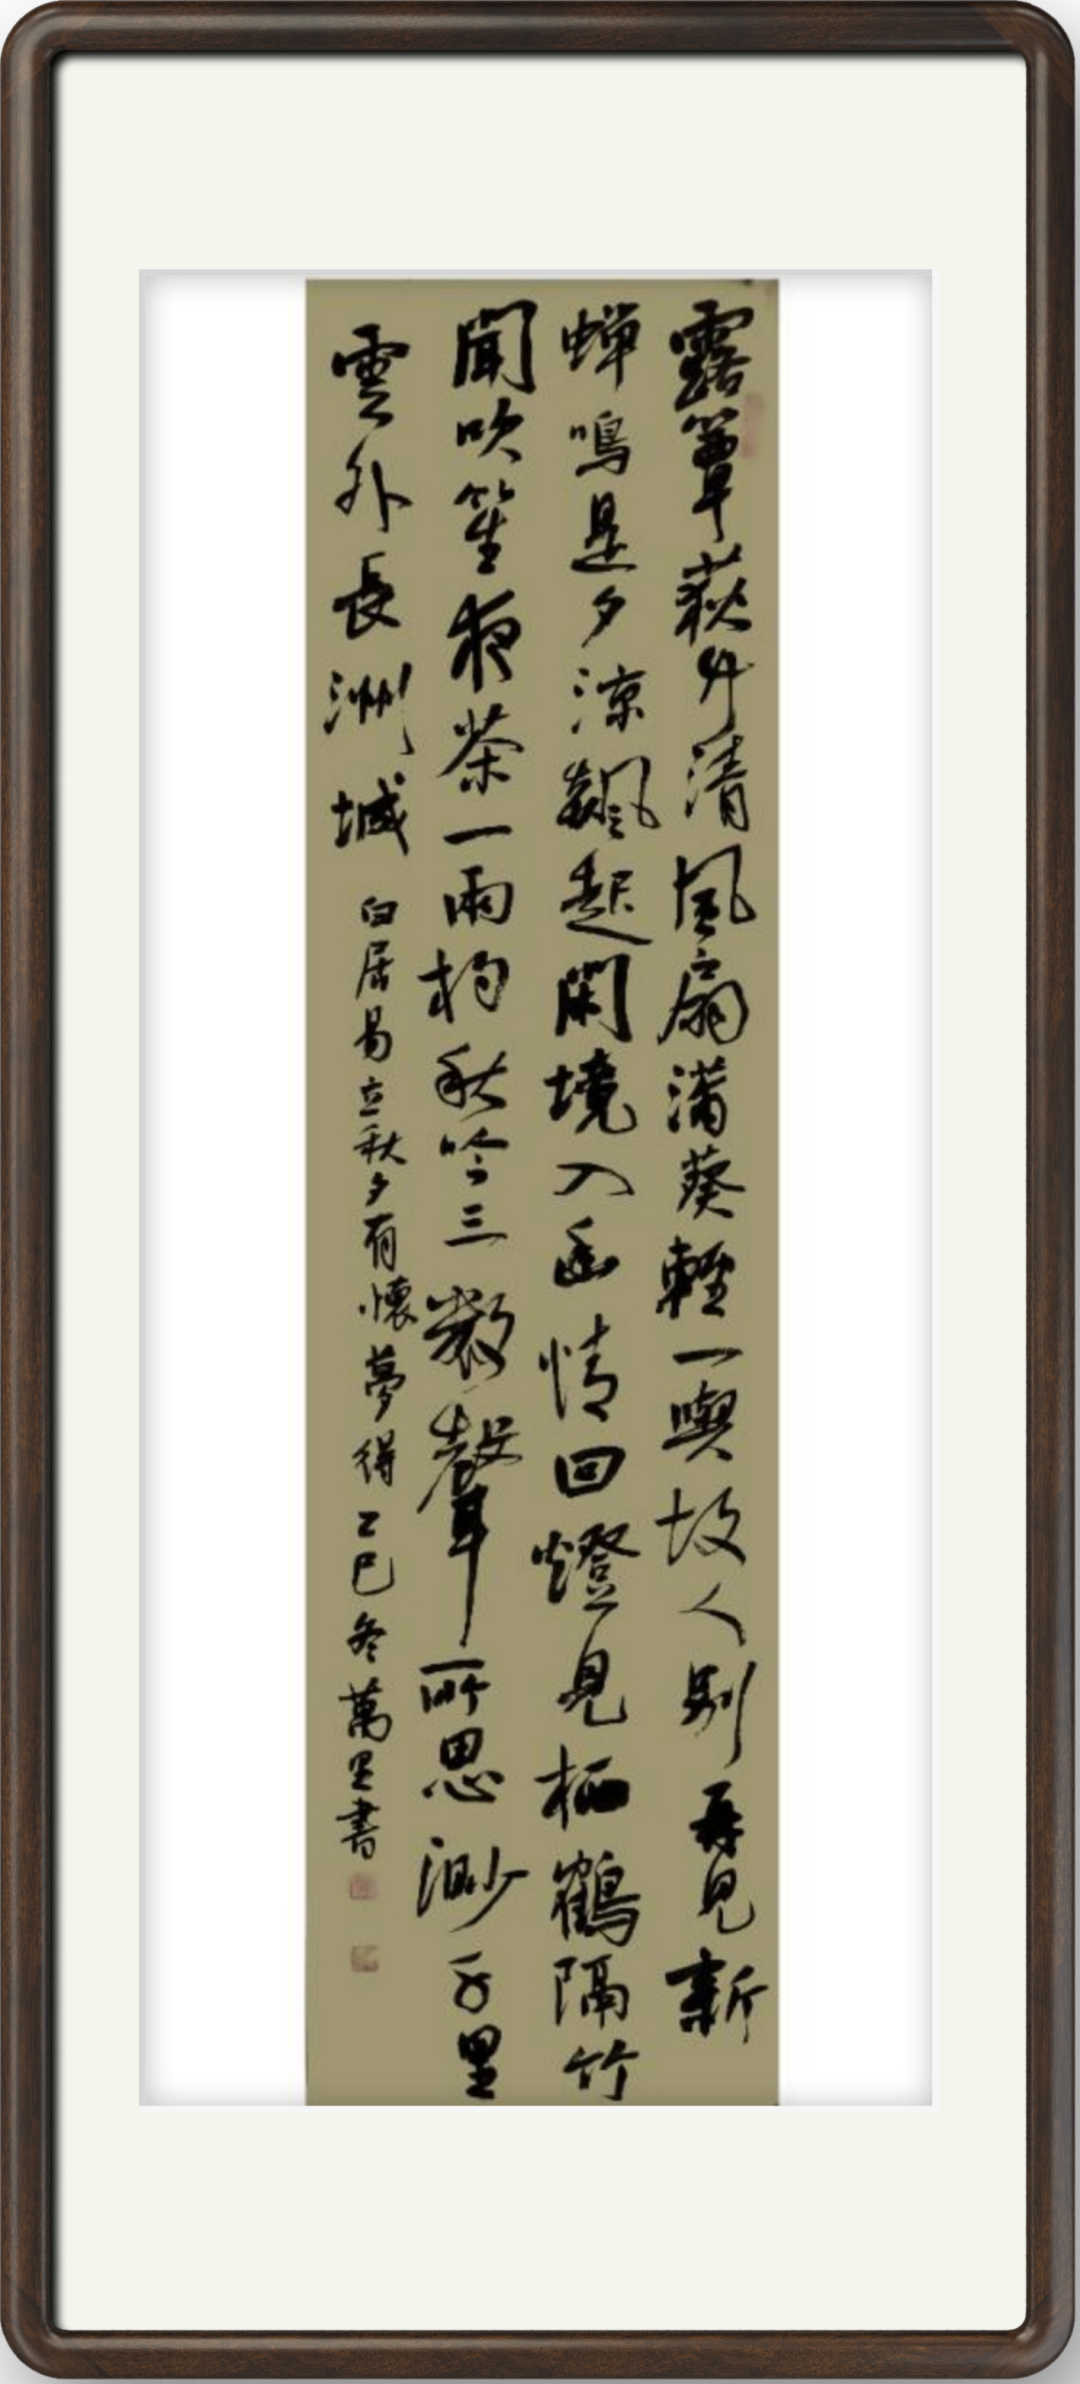 露簟荻竹清風扇蒲葵輕一與故人別再見新
蟬鳴是夕涼飆起閑境入幽情回燈見栖鶴隔竹
聞吹笙夜茶一兩杓秋吟三數聲所思渺千里
雲外長洲城 白居易立秋夕有懷夢得 乙巳冬萬里書